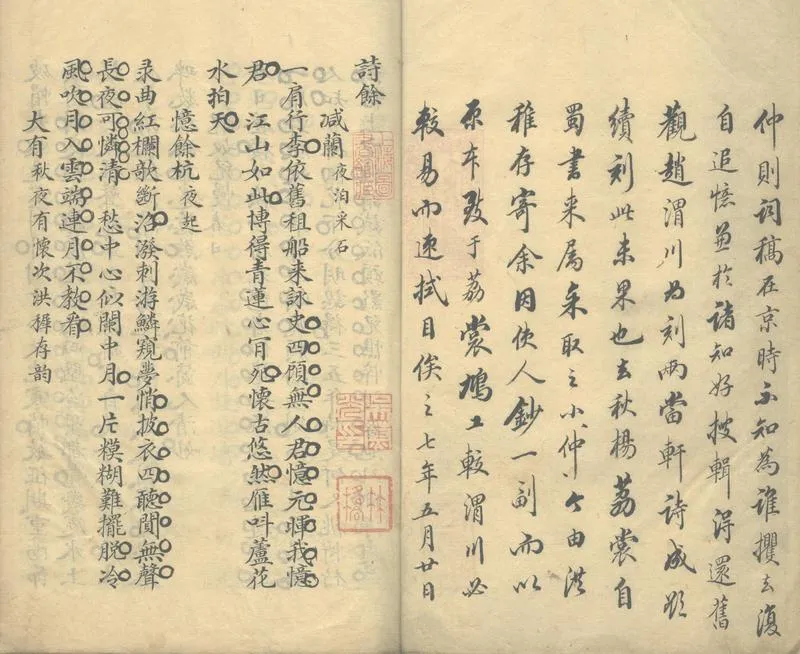 仲則詞稿在京時不知為誰攫去復
自追憶並於諸知好搜輯得還舊
觀趙渭川為刻兩當軒詩成欲
續刻此未果也去秋楊荔裳自
蜀書来屬采取之小仲今由洪
稚存寄余因使人鈔一副而以
原本致于荔裳鳩工較渭川必
較易而速拭目俟之七年五月廿日
詩餘
減蘭 夜泊采石
一肩行李依舊租船来詠史四顧無人君憶元暉我憶
君 江山如此博得青蓮心肯死懷古悠然雁呌蘆花
水拍天
憶餘杭 夜起
彔曲紅欄欹斷沼潑剌游鱗窺夢悄披衣四聽闃無聲
長夜可憐清 愁中心似闌中月一片糢糊難擺脫冷
風吹月入雲端連月不教看
大有 秋夜有懷次洪穉存韵